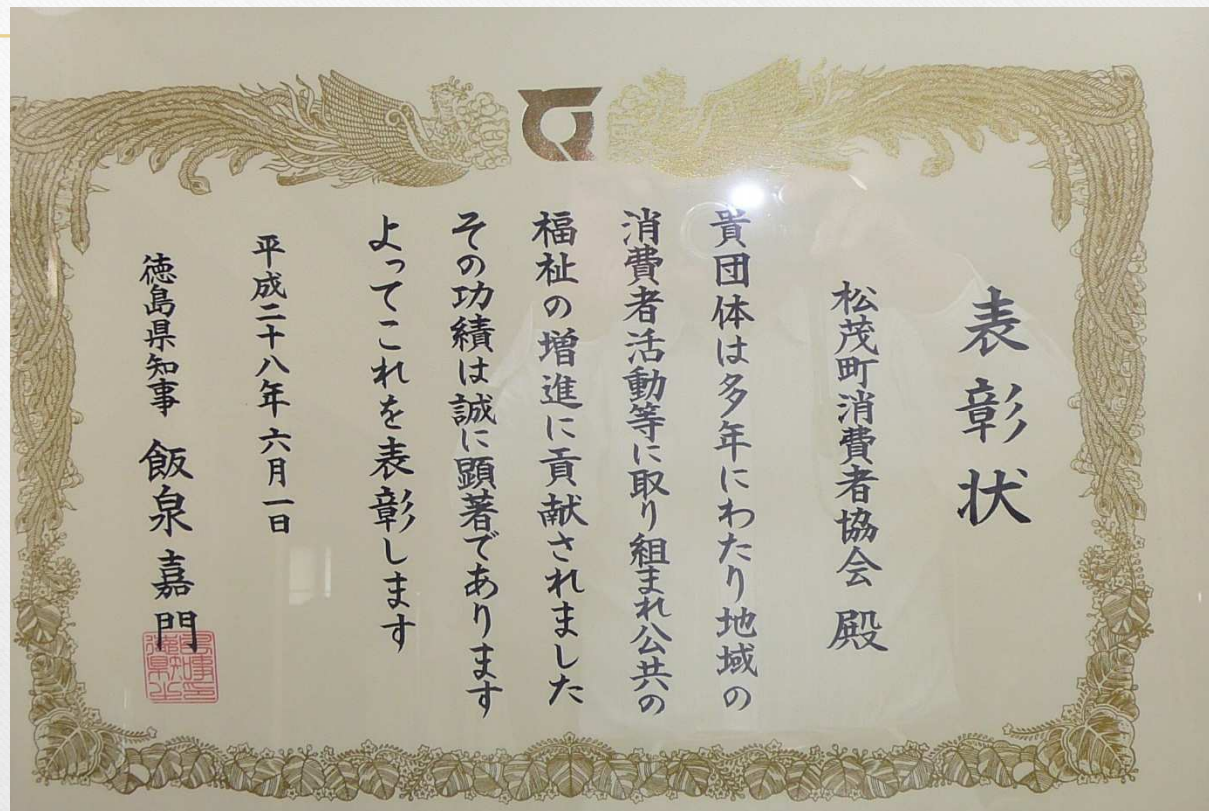 表彰状
松茂町消費者協会 殿
貴団体は多年にわたり地域の
消費者活動等に取り組まれ公共の
福祉の増進に貢献されました
その功績は誠に顕著であります
よってこれを表彰します
平成二十八年六月一日
徳島県知事 飯泉嘉門